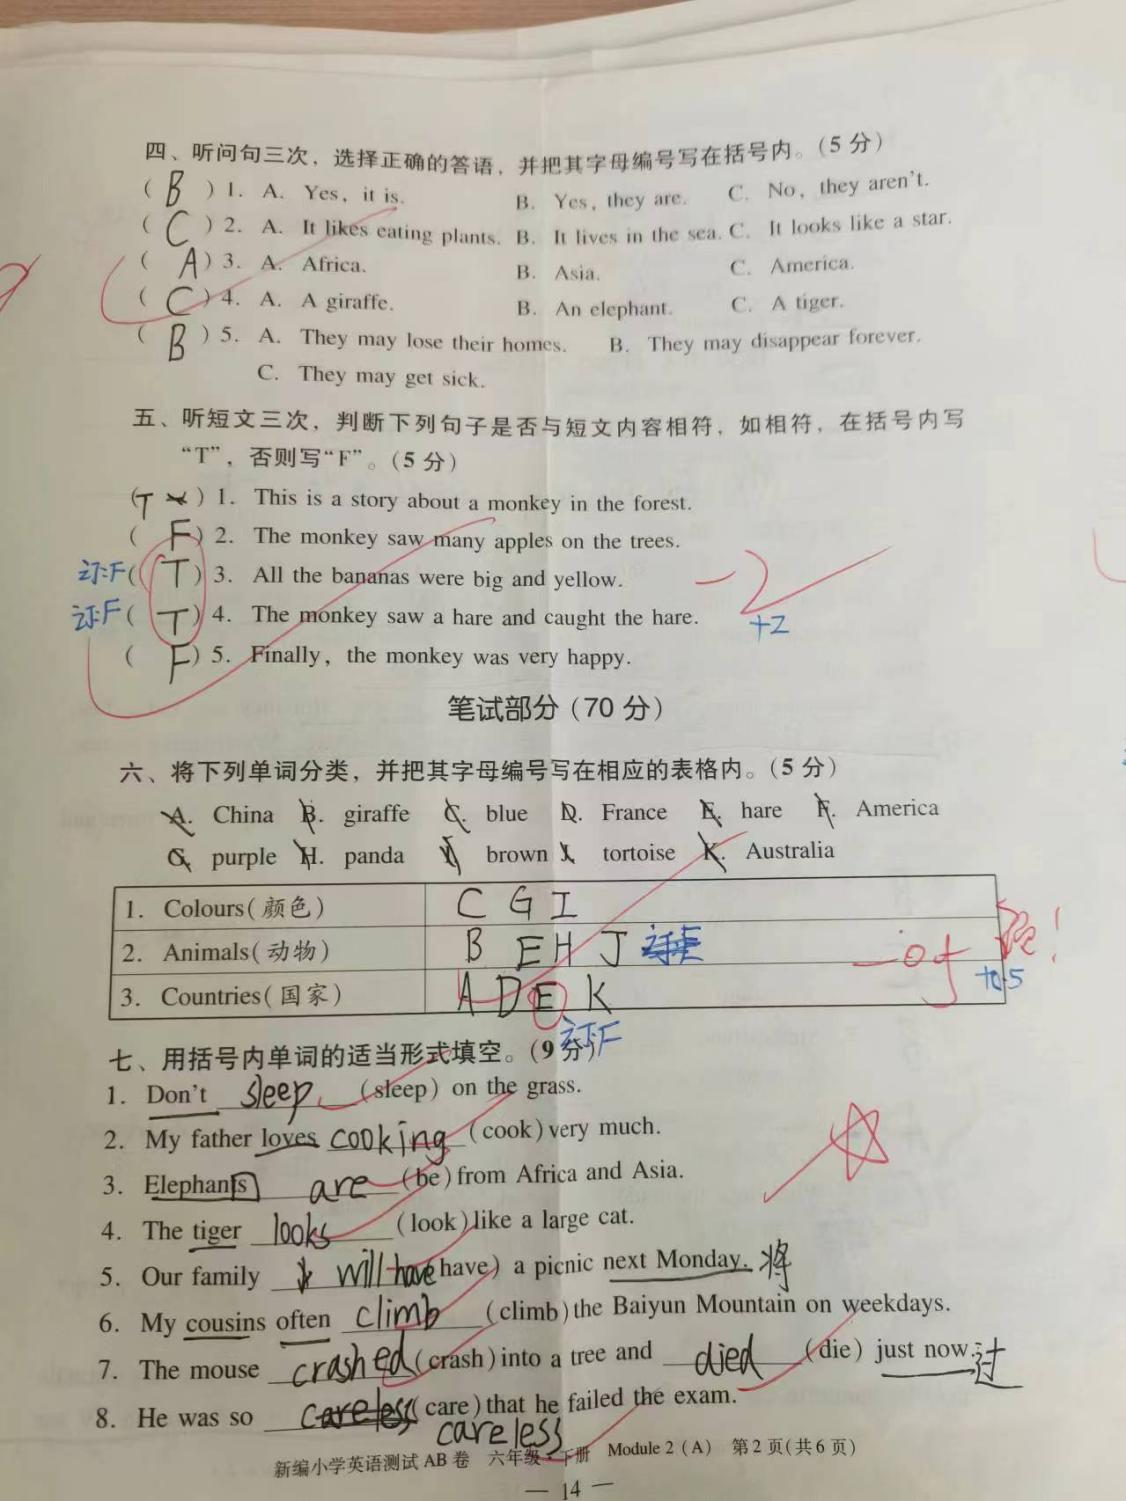 四、听问句三次，选择正确的答语，并把其字母编号写在括号内。(5 分)
( B ) 1. A. Yes, it is. B. Yes, they are. C. No, they aren't.
( C ) 2. A. It likes eating plants. B. It lives in the sea. C. It looks like a star.
( A ) 3. A. Africa. B. Asia. C. America.
( C ) 4. A. A giraffe. B. An elephant. C. A tiger.
( B ) 5. A. They may lose their homes. B. They may disappear forever.
C. They may get sick.
五、听短文三次，判断下列句子是否与短文内容相符，如相符，在括号内写
“T”，否则写“F”。(5 分)
( T ) 1. This is a story about a monkey in the forest.
( F ) 2. The monkey saw many apples on the trees.
订:F ( T ) 3. All the bananas were big and yellow. -2
订:F ( T ) 4. The monkey saw a hare and caught the hare. +2
( F ) 5. Finally, the monkey was very happy.
笔试部分 (70 分)
六、将下列单词分类，并把其字母编号写在相应的表格内。(5 分)
A. China B. giraffe C. blue D. France E. hare F. America
G. purple H. panda brown tortoise K. Australia
1. Colours(颜色) C G I
2. Animals(动物) B E H J
3. Countries(国家) A D E K +0.5
订F
七、用括号内单词的适当形式填空。(9 分)
1. Don't sleep (sleep) on the grass.
2. My father loves cooking (cook) very much.
3. Elephants are (be) from Africa and Asia.
4. The tiger looks (look) like a large cat.
5. Our family will have (have) a picnic next Monday. 将
6. My cousins often climb (climb) the Baiyun Mountain on weekdays.
7. The mouse crashed (crash) into a tree and died (die) just now. 过
8. He was so careless (care) that he failed the exam.
careless
新编小学英语测试 AB 卷 六年级·下册 Module 2 (A) 第 2 页(共 6 页)
— 14 —